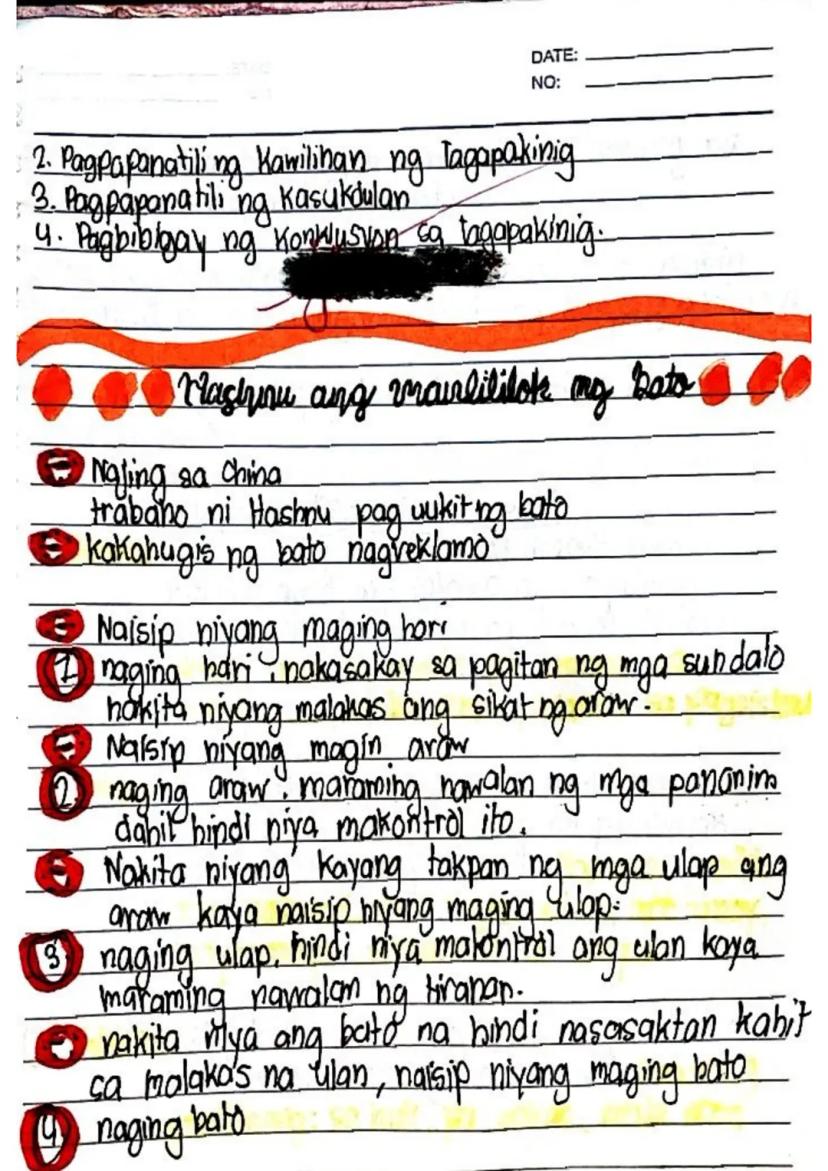 DATE:
NO:
2. Pagpapanatili ng Kawilihan ng Tagapakinig
3. Pagpapanatili ng Kasukdulan
4. Pagbibigay ng Konklusyon sa tagapakinig.
Hashnu ang manlililok ng Bato
Naling sa China
trabaho ni Hashnu pag uukit ng bato
kakahugis ng bato nagreklamo
Naisip niyang maging hari
1 naging hari, nakasakay sa pagitan ng mga sundalo
nakita niyang malakas ang sikat ng araw.
Naisip niyang magin araw
2 naging araw, maraming nawalan ng mga pananim
dahil hindi niya makontrol ito.
Nakita niyang kayang takpan ng mga ulap ang
araw kaya naisip niyang maging ulap.
3 naging ulap, hindi niya makontrol ang ulan kaya
maraming nawalan ng tirahan.
nakita niya ang bato na hindi nasasaktan kahit
sa malakas na ulan, naisip niyang maging bato
4 naging bato